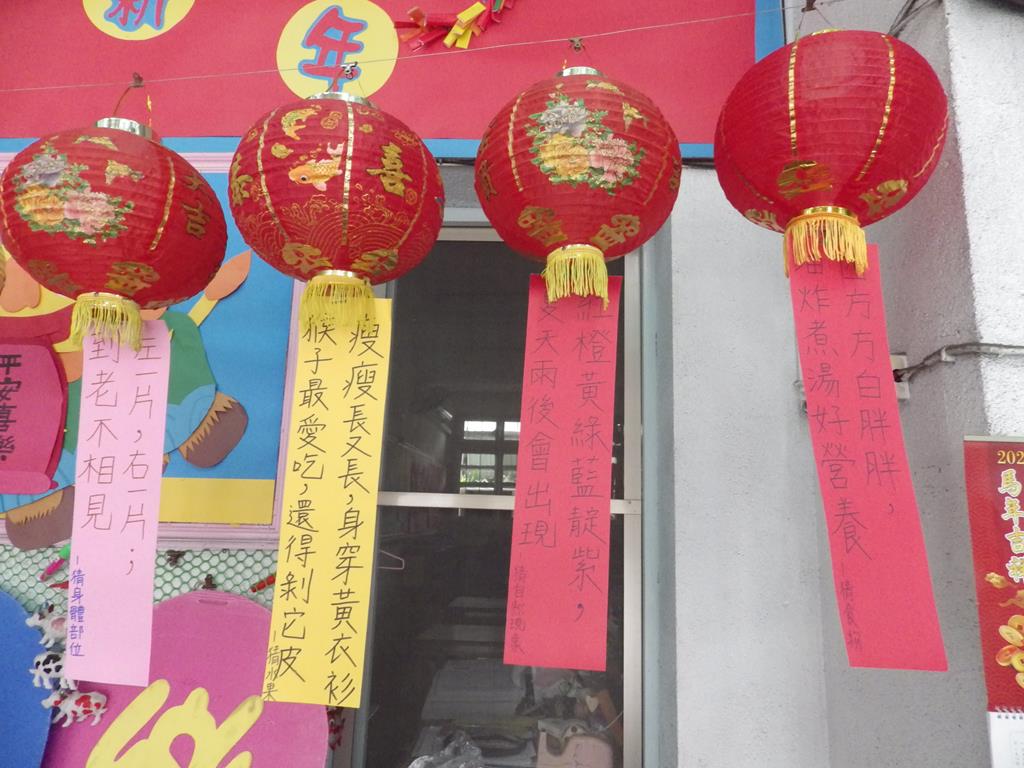 新
年
喜
平安喜樂
左一片，右一片；
到老不相見
-猜身體部位
瘦瘦長又長，身穿黃衣衫
猴子最愛吃，還得剝它皮
-猜水果
紅橙黃綠藍靛紫，
夏天雨後會出現
-猜自然現象
方方白胖胖，
油炸煮湯好營養
-猜食物
202
馬年吉祥